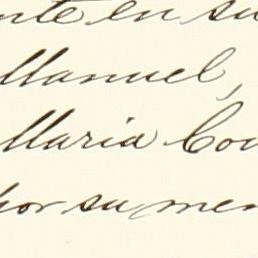 nte en su
Manuel,
Maria Cou
por su men